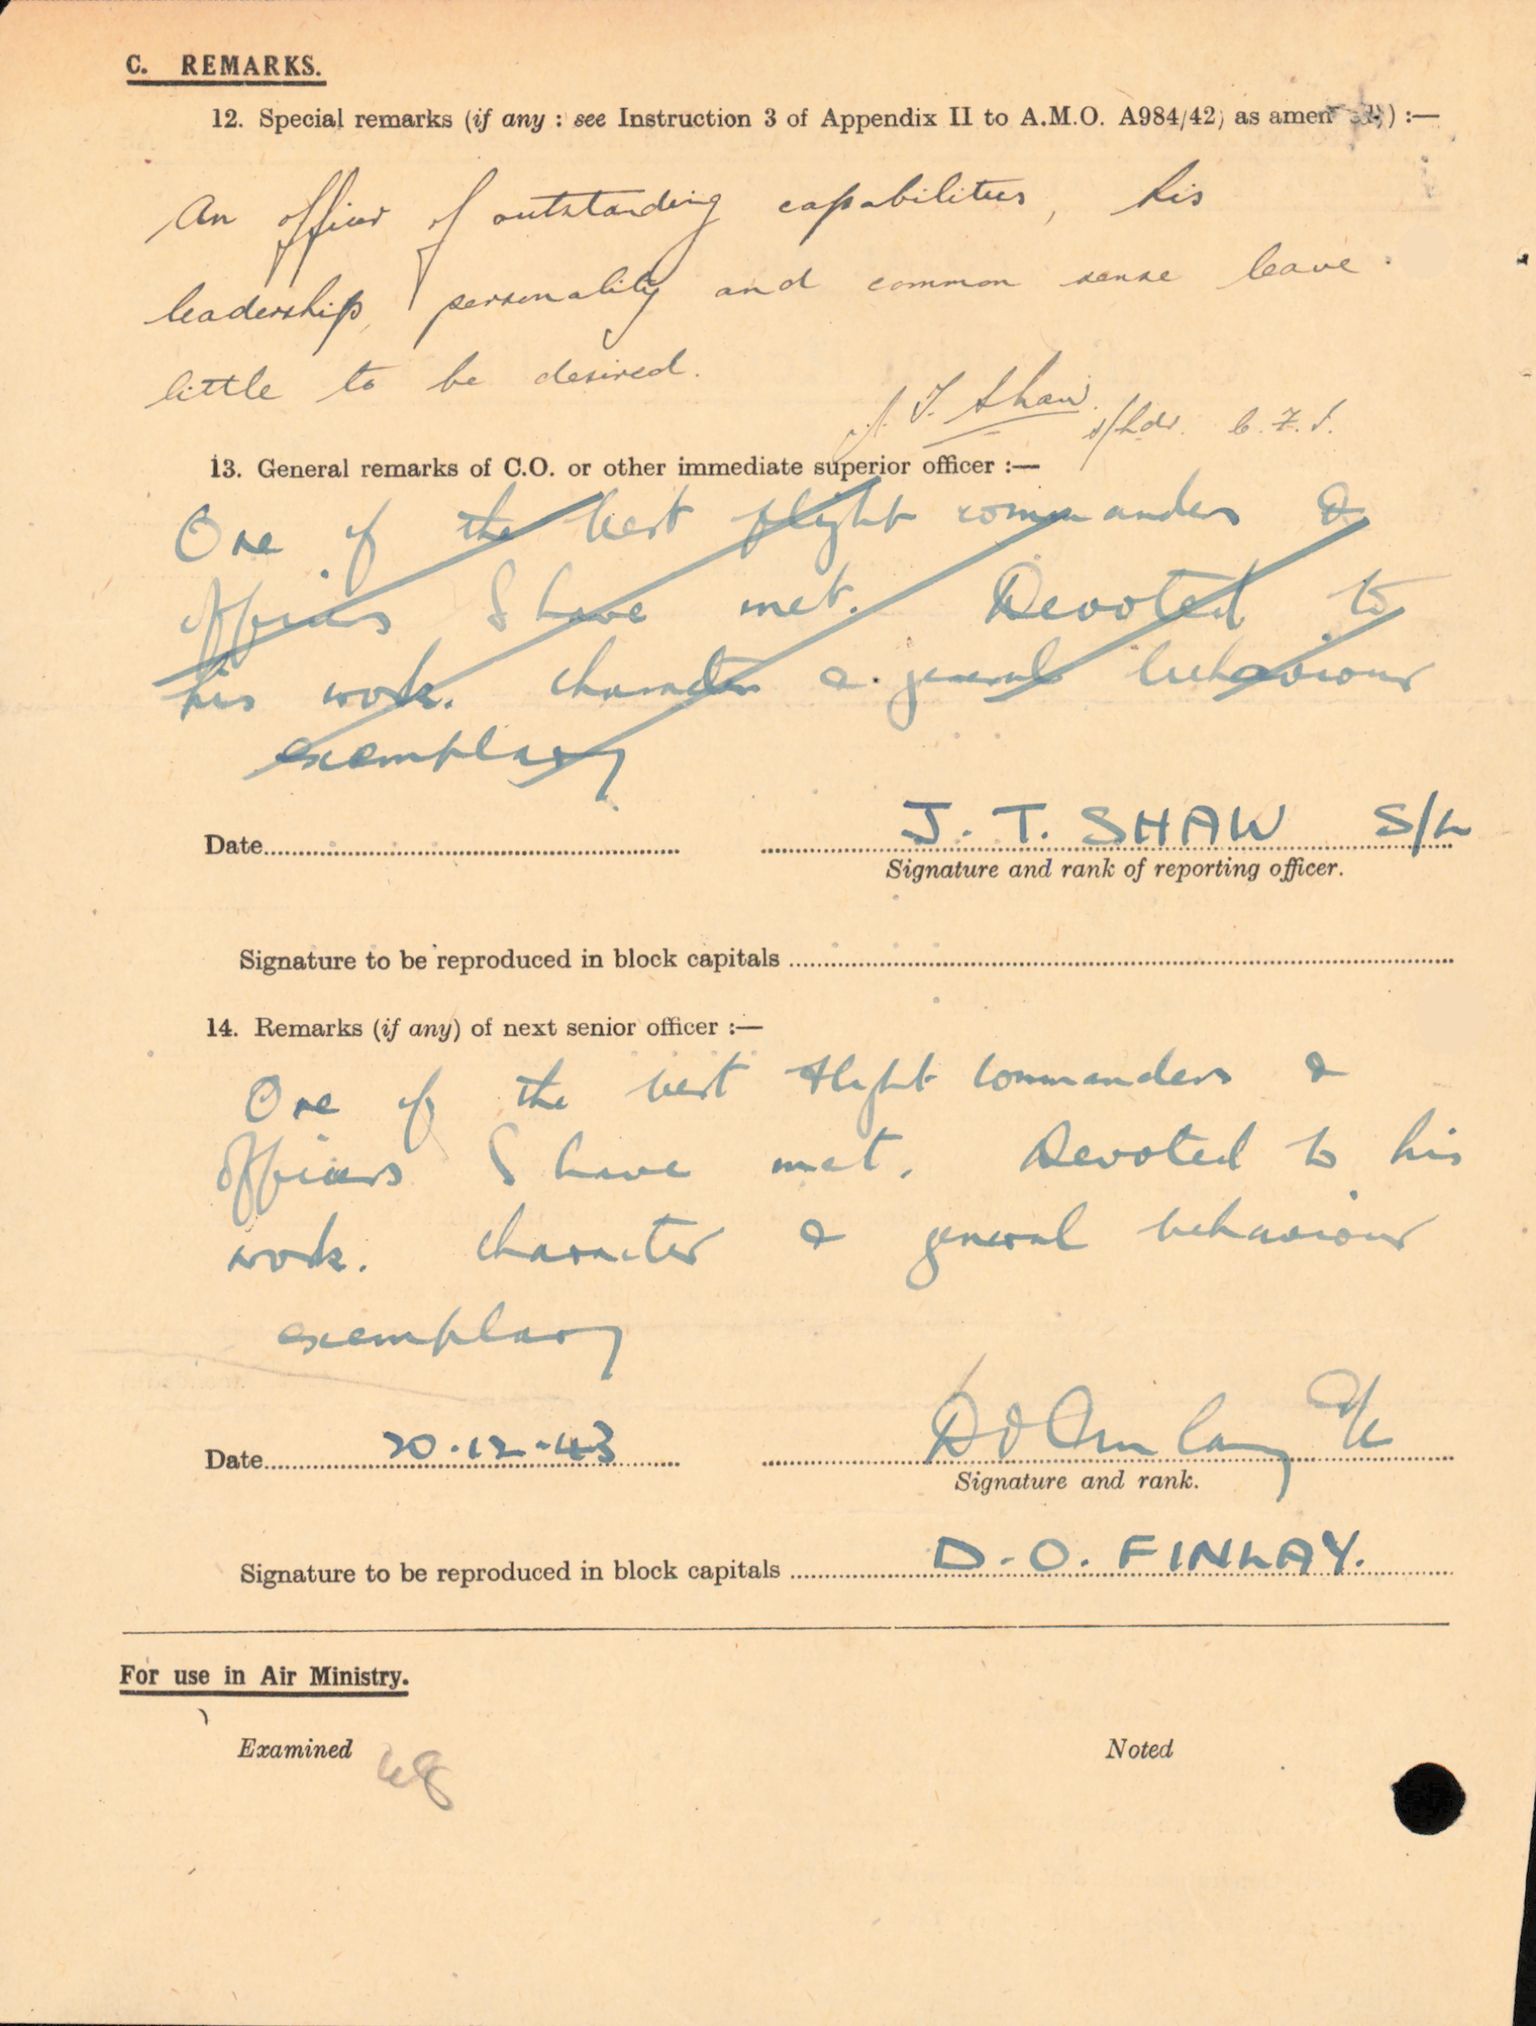 C. REMARKS.
12. Special remarks (if any : see Instruction 3 of Appendix II to A.M.O. A984/42, as amended) :—
An officer of outstanding capabilities, his
leadership, personality and common sense leave
little to be desired.
J. T. Shaw. S/Ldr. C.F.I.
13. General remarks of C.O. or other immediate superior officer :—
One of the best flight commanders &
officers I have met. Devoted to
his work. Character & general behaviour
exemplary
J. T. SHAW S/L
Date
Signature and rank of reporting officer.
Signature to be reproduced in block capitals
14. Remarks (if any) of next senior officer :—
One of the best flight commanders &
officers I have met. Devoted to his
work. Character & general behaviour
exemplary
Date 20-12-43 D O Finlay
Signature and rank.
Signature to be reproduced in block capitals D. O. FINLAY.
For use in Air Ministry.
Examined Noted